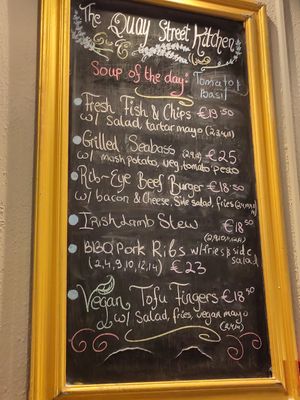 The Quay Street Kitchen
Soup of the day: Tomato &
Basil
Fresh Fish & Chips €19.50
w/ salad, tartar mayo
Grilled Seabass €25
w/ mash potato, veg, tomato pesto
Rib-Eye Beef Burger €18.50
w/ bacon & Cheese, Side salad, fries
Irish Lamb Stew €18.50
BBQ Pork Ribs w/ fries & side
salad
(2,4,9,10,12,14) €23
Vegan Tofu Fingers €18.50
w/ Salad, fries, vegan mayo